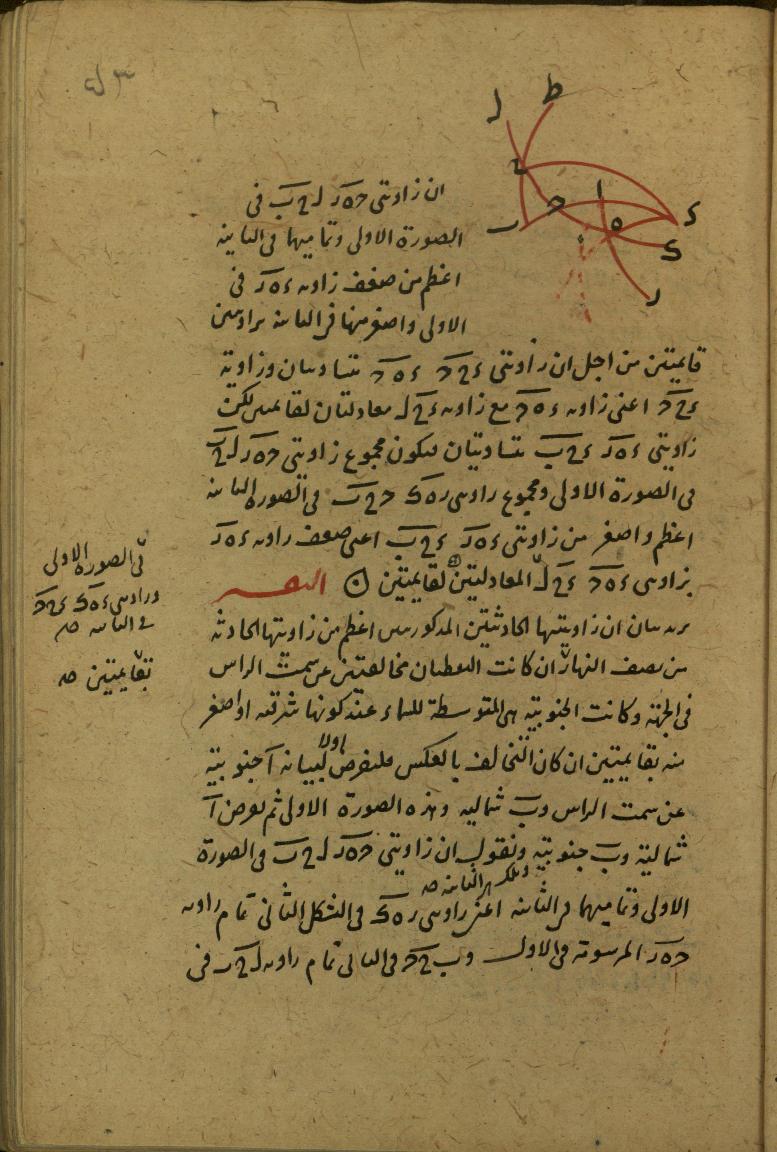 ان زاويتي حهر لحب في
الصورة الاولى وتماميها في الثانية
اعظم من ضعف زاوية ءهر في
الاولى واصغر منها في الثانية بزاويتين
قائمتين من اجل ان زاويتي ءحح ءهح متساويتان وزاوية
ءحح اعني زاوية ءهح مع زاوية ءحل معادلتان لقائمتين لكن
زاويتي ءهر ءحب متساويتان فيكون مجموع زاويتي حهر لحب
في الصورة الاولى ومجموع زاويتي رهك ححب في الصورة الثانية
اعظم واصغر من زاويتي ءهر ءحب اعني ضعف زاوية ءهر
بزاويتي ءهح ءحل المعادلتين لقائمتين
يريد بيان ان زاويتيها الحادثتين المذكورتين اعظم من زاويتها الحادثة
من نصف النهار ان كانت النقطتان مخالفتين عن سمت الراس
في الجهة وكانت الجنوبية هي المتوسطة للسماء عند كونها شرقية او اصغر
منه بقائمتين ان كان التخالف بالعكس فليفرض اولا لبيانه آ جنوبية
عن سمت الراس وب شمالية وهذه الصورة الاولى ثم نفرض آ
شمالية وب جنوبية ونقول ان زاويتي حهر لحب في الصورة
الاولى وتماميها في الثانية اعني زاويتي رهك في الشكل الثاني تمام زاوية
حهر المرسومة في الاول وبحح في الثاني تمام زاوية لحب في
في الصورة الاولى
وزاويتي ءهك ءحح
في الثانية صح
بقائمتين صح